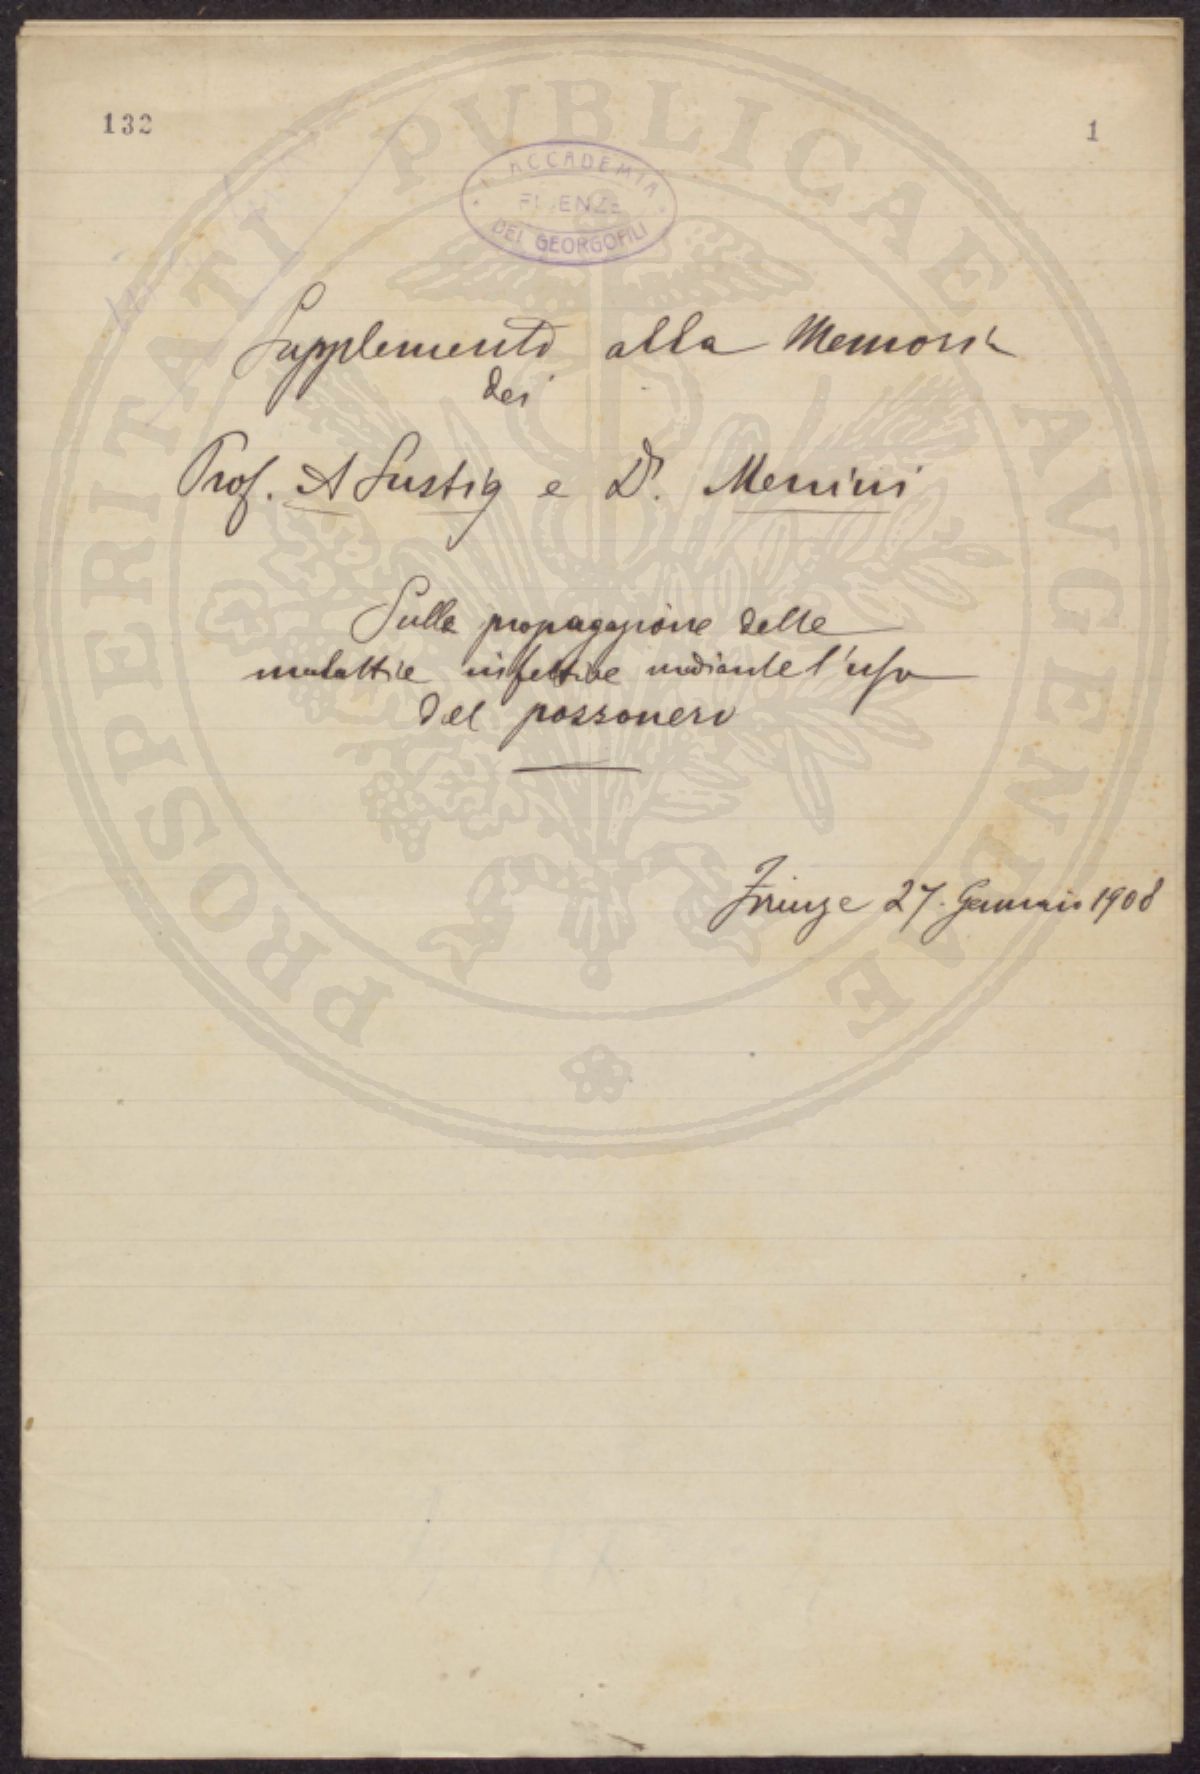 132
1
R. ACCADEMIA
FIRENZE
DEI GEORGOFILI
PROSPERITATI PUBLICAE AVGENDAE
Supplemento alla Memoria
dei
Prof. A Lustig e Dr. Menini
Sulla propagazione delle
malattie infettive mediante l'uso
del pozzonero
Firenze 27. Gennaio 1908